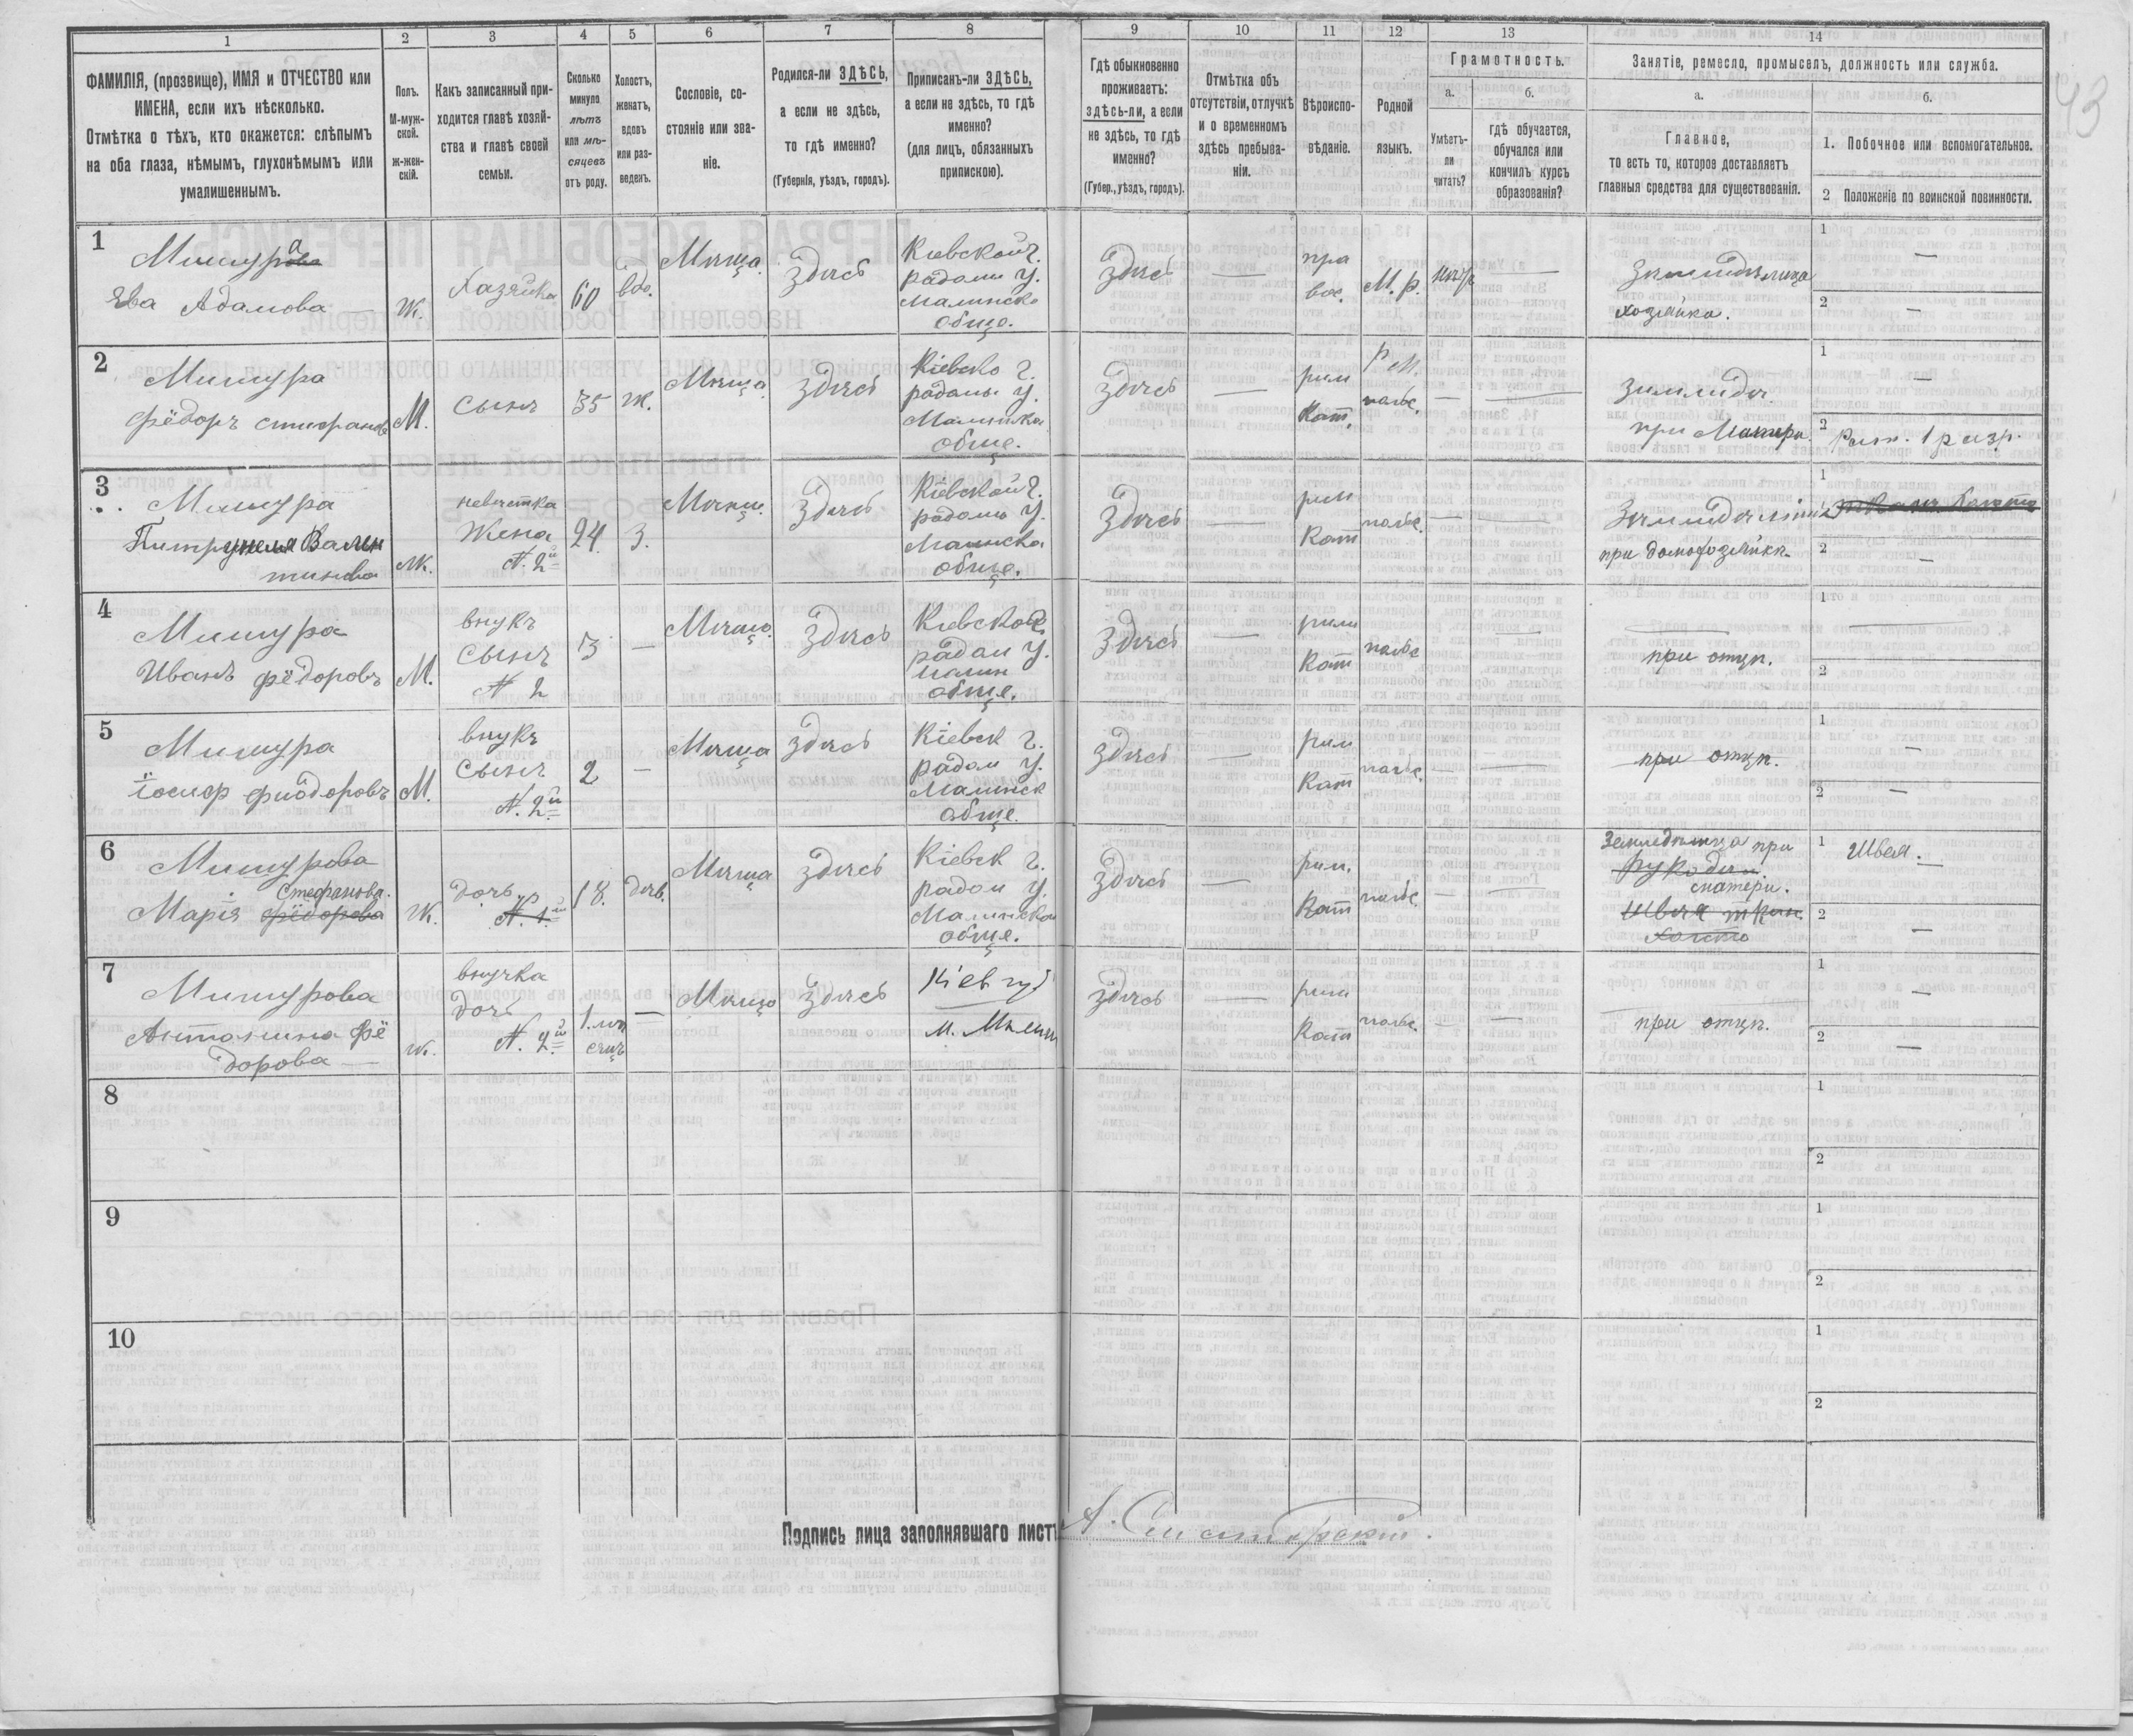 43
1 2 3 4 5 6 7 8 9 10 11 12 13 14
ФАМИЛІЯ, (прозвище), ИМЯ и ОТЧЕСТВО или
ИМЕНА, если ихъ нѣсколько.
Отмѣтка о тѣхъ, кто окажется: слѣпымъ
на оба глаза, нѣмымъ, глухонѣмымъ или
умалишеннымъ.
Полъ.
М-муж-
ской.
ж-жен-
скій.
Какъ записанный при-
ходится главѣ хозяй-
ства и главѣ своей
семьи.
Сколько
минуло
лѣтъ
или мѣ-
сяцевъ
отъ роду.
Холостъ,
женатъ,
вдовъ
или раз-
веденъ.
Сословіе, со-
стояніе или зва-
ніе.
Родился-ли ЗДѢСЬ,
а если не здѣсь,
то гдѣ именно?
(Губернія, уѣздъ, городъ).
Приписанъ-ли ЗДѢСЬ,
а если не здѣсь, то гдѣ
именно?
(для лицъ, обязанныхъ
припискою).
Гдѣ обыкновенно
проживаетъ:
ЗДѢСЬ-ли, а если
не здѣсь, то гдѣ
именно?
(Губер., уѣздъ, городъ).
Отмѣтка объ
отсутствіи, отлучкѣ
и о временномъ
здѣсь пребыва-
ніи.
Вѣроиспо-
вѣданіе.
Родной
языкъ.
Грамотность.
а.
Умѣетъ-
ли
читать?
б.
гдѣ обучается,
обучался или
кончилъ курсъ
образованія?
Занятіе, ремесло, промыселъ, должность или служба.
а.
Главное,
то есть то, которое доставляетъ
главныя средства для существованія.
б.
1. Побочное или вспомогательное.
2 Положеніе по воинской повинности.
1
Мишура
Ева Адамова —
Ж.
Хазяйка
60
вдо.
Мѣща.
Здѣсь
Киевской г.
радом у.
Малинско
обще.
Здѣсь
—
пра
вос.
М. р.
—
Земледѣлица
хозяйка.
1 —
2 —
2
Мишура
Фёдоръ Стефановъ
М.
сынъ
35
ж.
Мѣща
здѣсь
Кіевско г.
радомы у.
обще.
Здѣсь
—
рим
Кат.
польс.
—
—
Земледе.
при Матери.
1 —
2 Рат. 1 разр.
3
Мишура
Вален
тинова
Ж.
невѣстка
Жена
N. 2й
24
З.
Мѣщ.
Здѣсь
Кіевской г.
радомы у.
обще.
Здѣсь
—
рим
Кат
польс.
—
—
при домохозяйкѣ
1
2 —
4
Мишура
Иванъ Фёдоровъ
М.
внукъ
сынъ
N 2
3
—
Мѣща.
Здѣсь
Киевской
радом у.
Малин
обще.
Здѣсь
—
рим
Кат
польс
—
при отцѣ.
1
2
5
Мишура
Іосифъ Фиодоровъ
М.
внукъ
сынъ
N. 2й
2
—
Мѣща
здѣсь
Кіевск г.
радом у.
Малинск
обще.
здѣсь
—
рим
Кат
польс.
—
—
при отцѣ.
1 —
2 —
6
Мишурова
Стефанова.
Марія Фёдорова
Ж.
дочь
N. 1й
18.
дѣв.
Мѣща
здѣсь
Кіевск г.
радом у.
Малинска
обще.
Здѣсь
—
рим.
Кат
польс.
—
—
Земледѣлица при
матери.
1 Швея. —
2 —
7
Мишурова
Антонина Фё
дорова —
ж.
внучка
дочь
N. 2й
1. мѣ
сяцъ
—
Мѣща
Здѣсь
Кіев губ
здѣсь
—
рим
Кат
польс.
—
—
при отцѣ.
1 —
2 —
8
1
2
9
1
2
10
1
2
Подпись лица заполнявшаго листъ